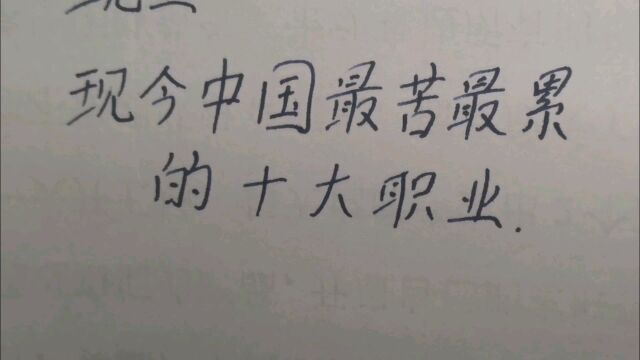 现今中国最苦最累
的十大职业.